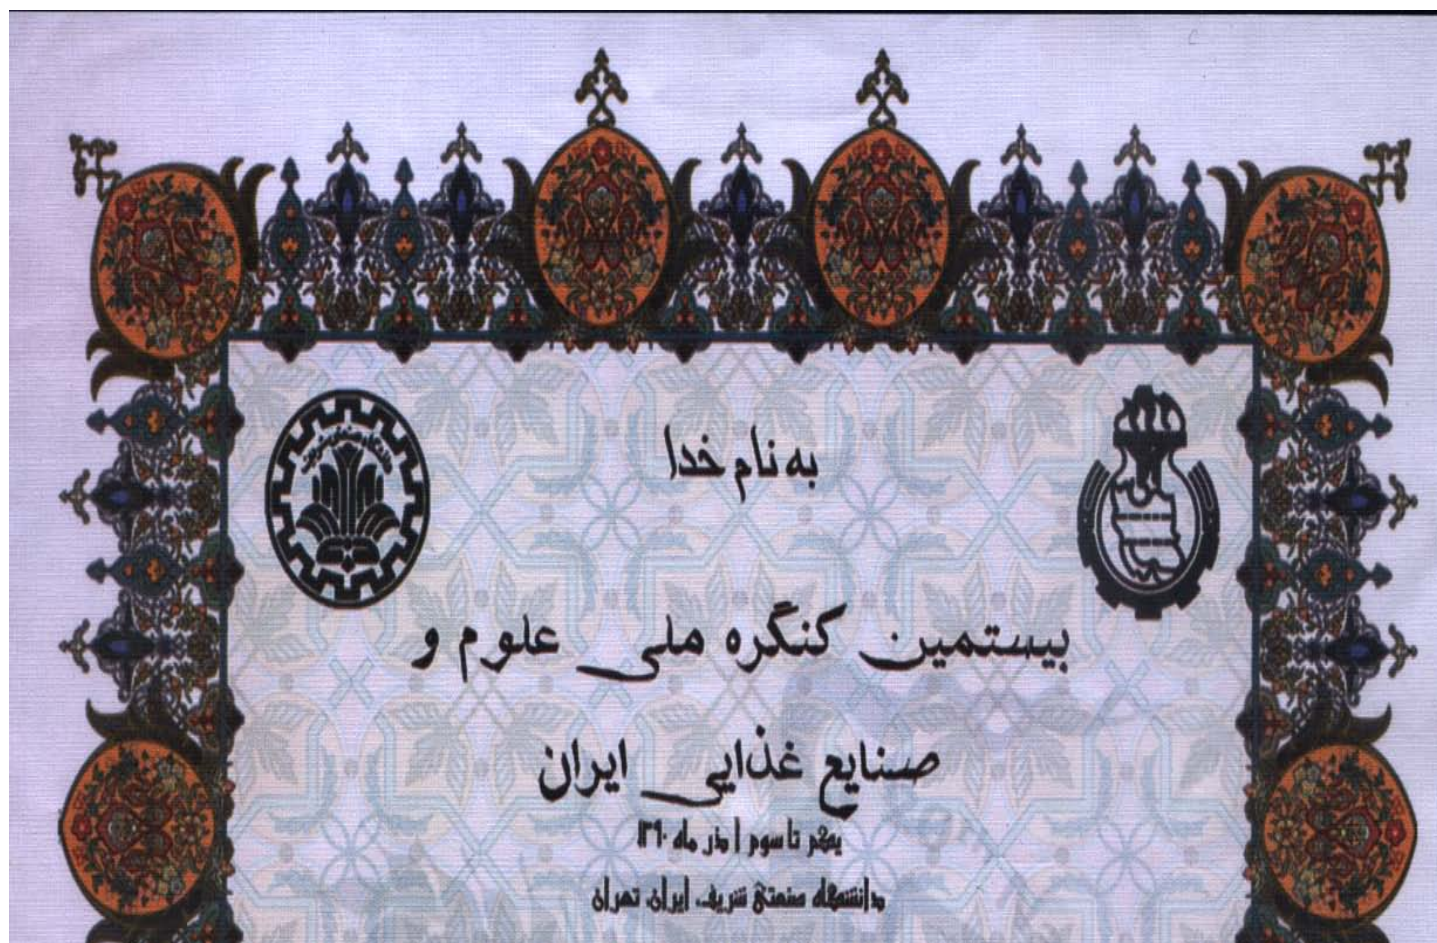 به نام خدا
بیستمین کنگره ملی علوم و
صنایع غذایی ایران
یکم تا سوم آذر ماه ۱۳۹۰
دانشگاه صنعتی شریف، ایران، تهران